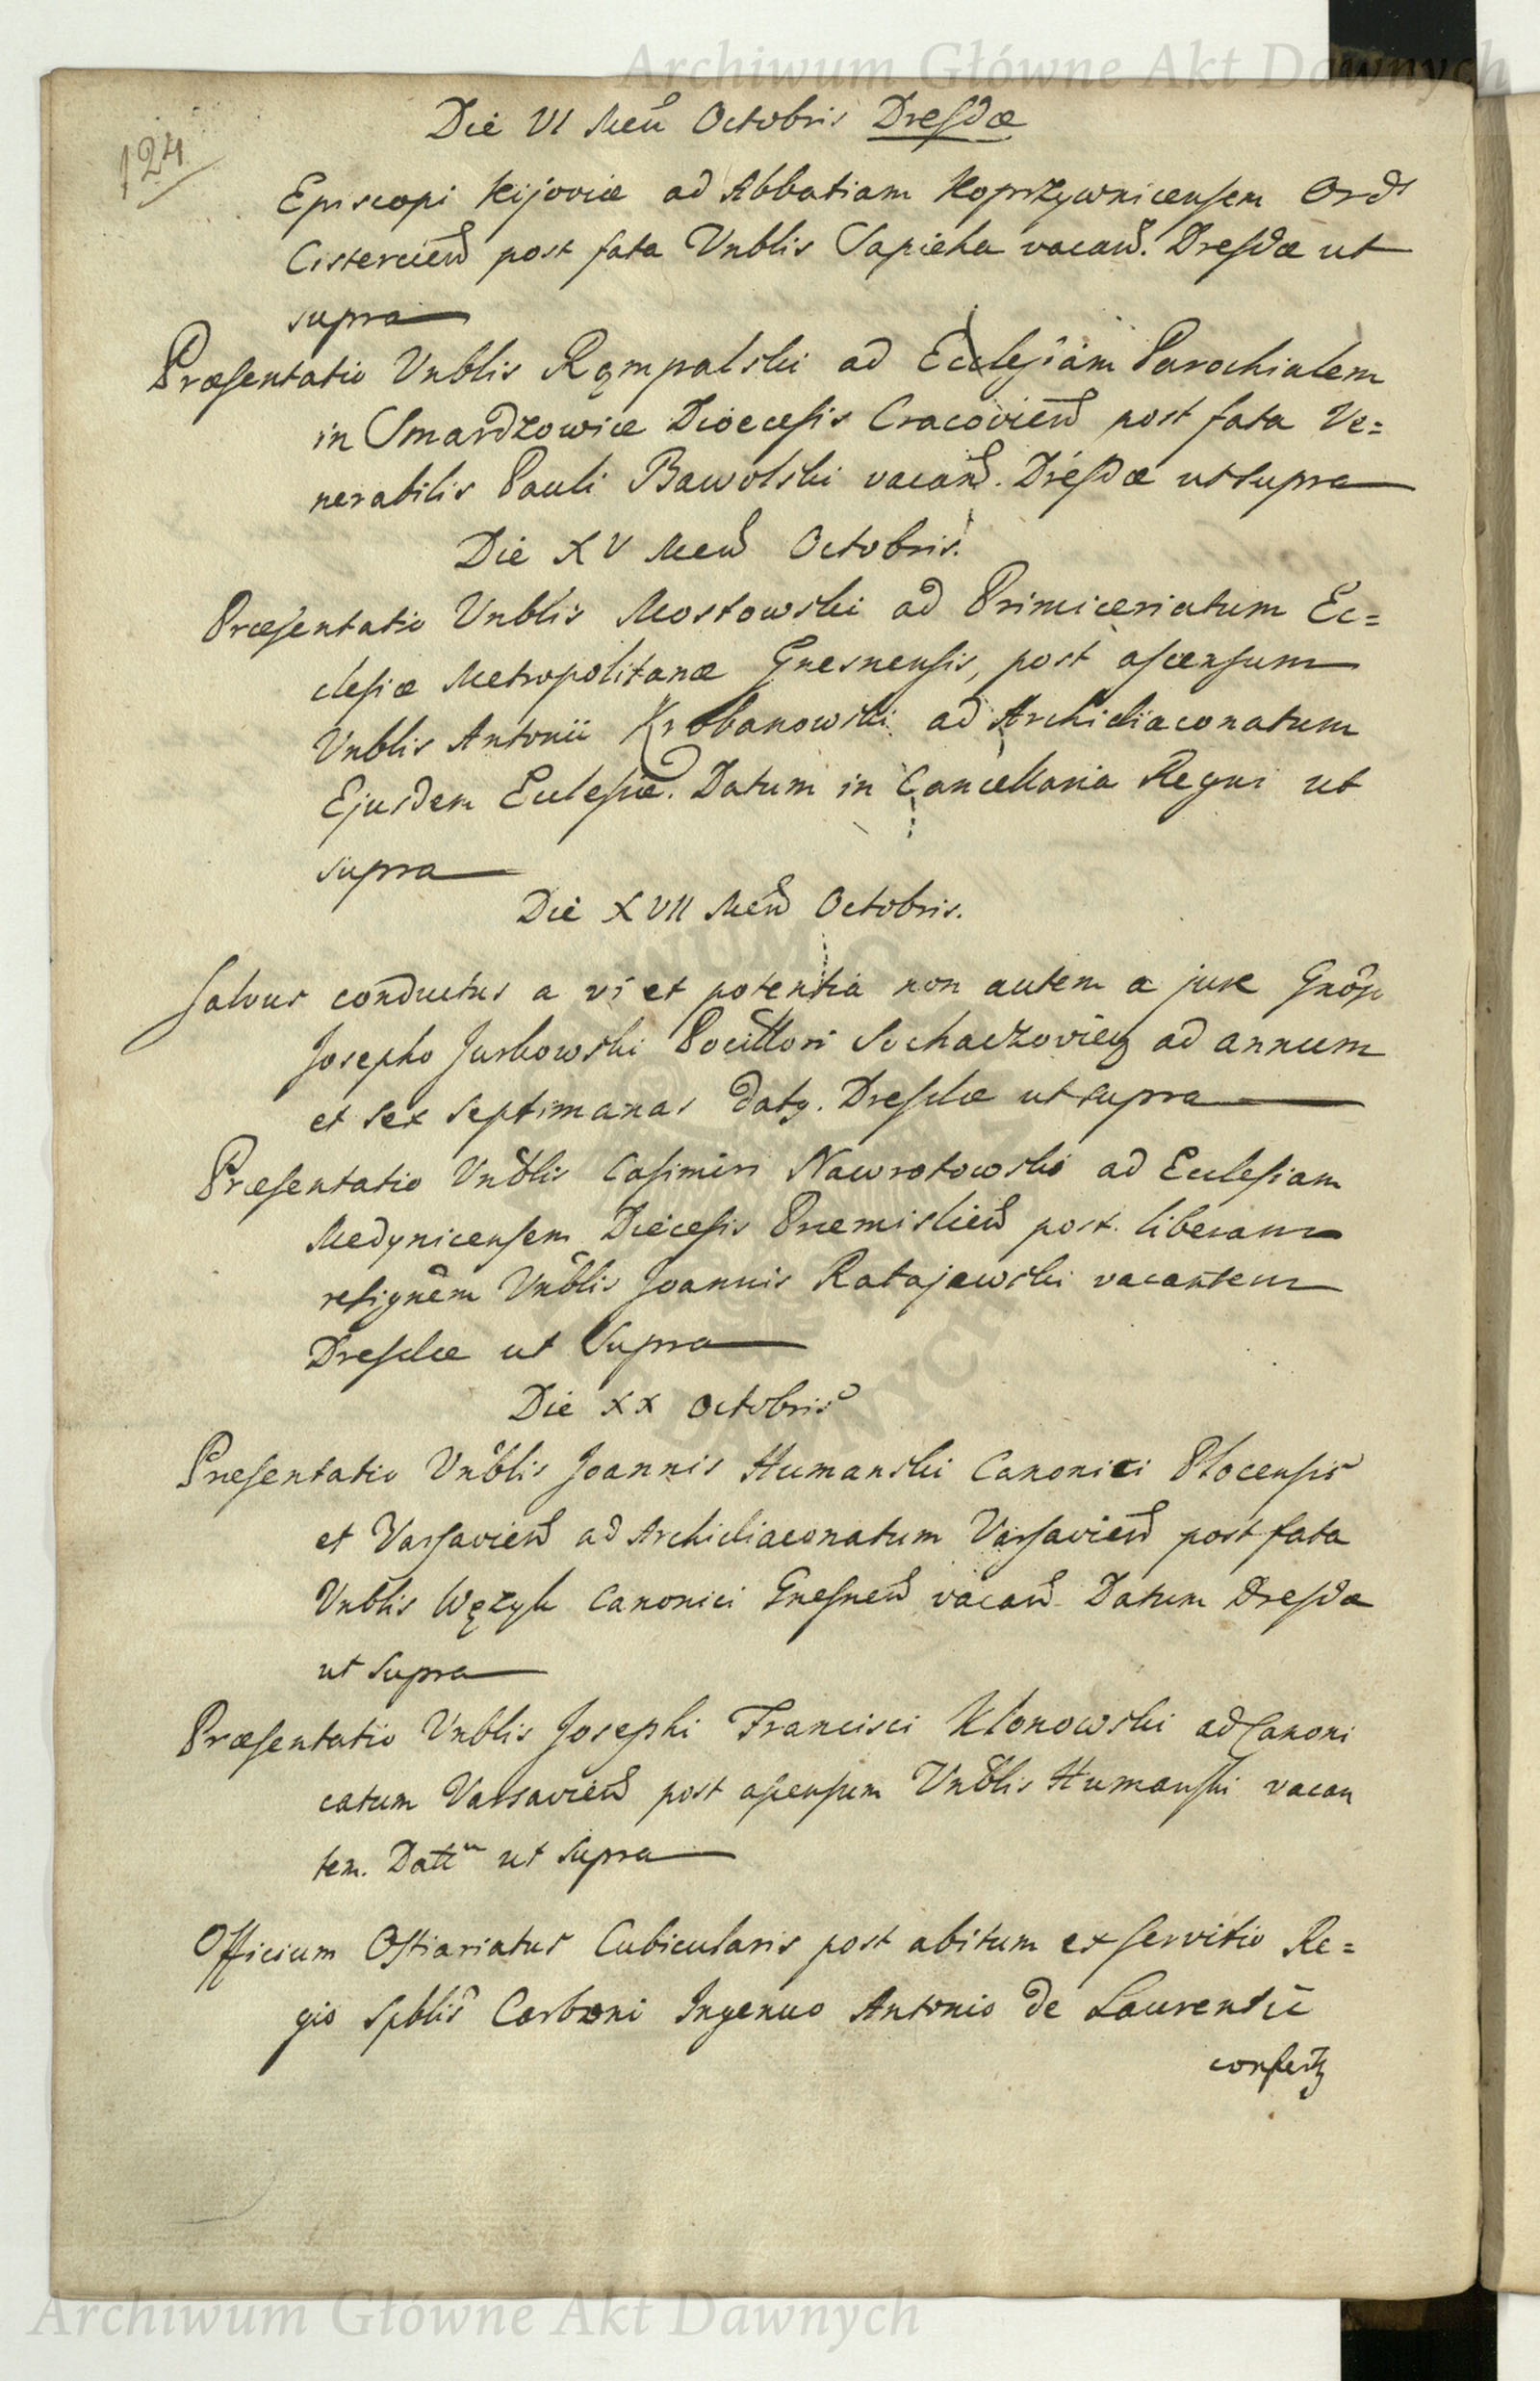 Archiwum Główne Akt Dawnych
124
Die VI Men̄ Octobris Dresdæ
Episcopi Kijoviæ ad Abbatiam Koprzywnicensem Ord̄s
Cistercień post fata Vnblis Sapieha vacan̄. Dresdæ ut
supra
Præsentatio Vnblis Rąmpalski ad Ecclesiam Parochialem
in Smardzowice Diœcesis Cracovień post fata Ve=
nerabilis Pauli Bawolski vacan̄. Dresdæ ut supra
Die XV Men̄ Octobris.
Præsentatio Vnblis Mostowski ad Primiceriatum Ec=
clesiæ Metropolitanæ Gnesnensis, post ascensum
Vnblis Antonii Krobanowski ad Archidiaconatum
Ejusdem Ecclesiæ. Datum in Cancellaria Regni ut
supra
Die XVII Men̄ Octobris.
Salvus conductus a vi et potentia non autem a jure Gnoso
Josepho Jurkowski Pocillori Sochaczovien ad annum
et sex septimanas daty. Dresdæ ut supra
Præsentatio Vnblis Casimiri Nawrotowski ad Ecclesiam
Medynicensem Diecesis Præmislień post liberam
resignēm Vnblis Joannis Ratajewski vacantem
Dresdæ ut Supra
Die XX Octobris
Præsentatio Vnblis Joannis Humanski Canonici Plocensis
et Varsavień ad Archidiaconatum Varsavień post fata
Vnblis Wężyk Canonici Gnesneń vacan̄ Datum Dresdæ
ut Supra
Præsentatio Vnblis Josephi Francisci Klonowski ad Canoni
catum Varsavień post ascensum Vnblis Humanski vacan
tem. Datt͞m ut supra
Officium Ostiariatus Cubicularis post abitum ex servitio Re=
gio Spblis Carboni Ingenuo Antonio de Laurentii
confertz
Archiwum Główne Akt Dawnych